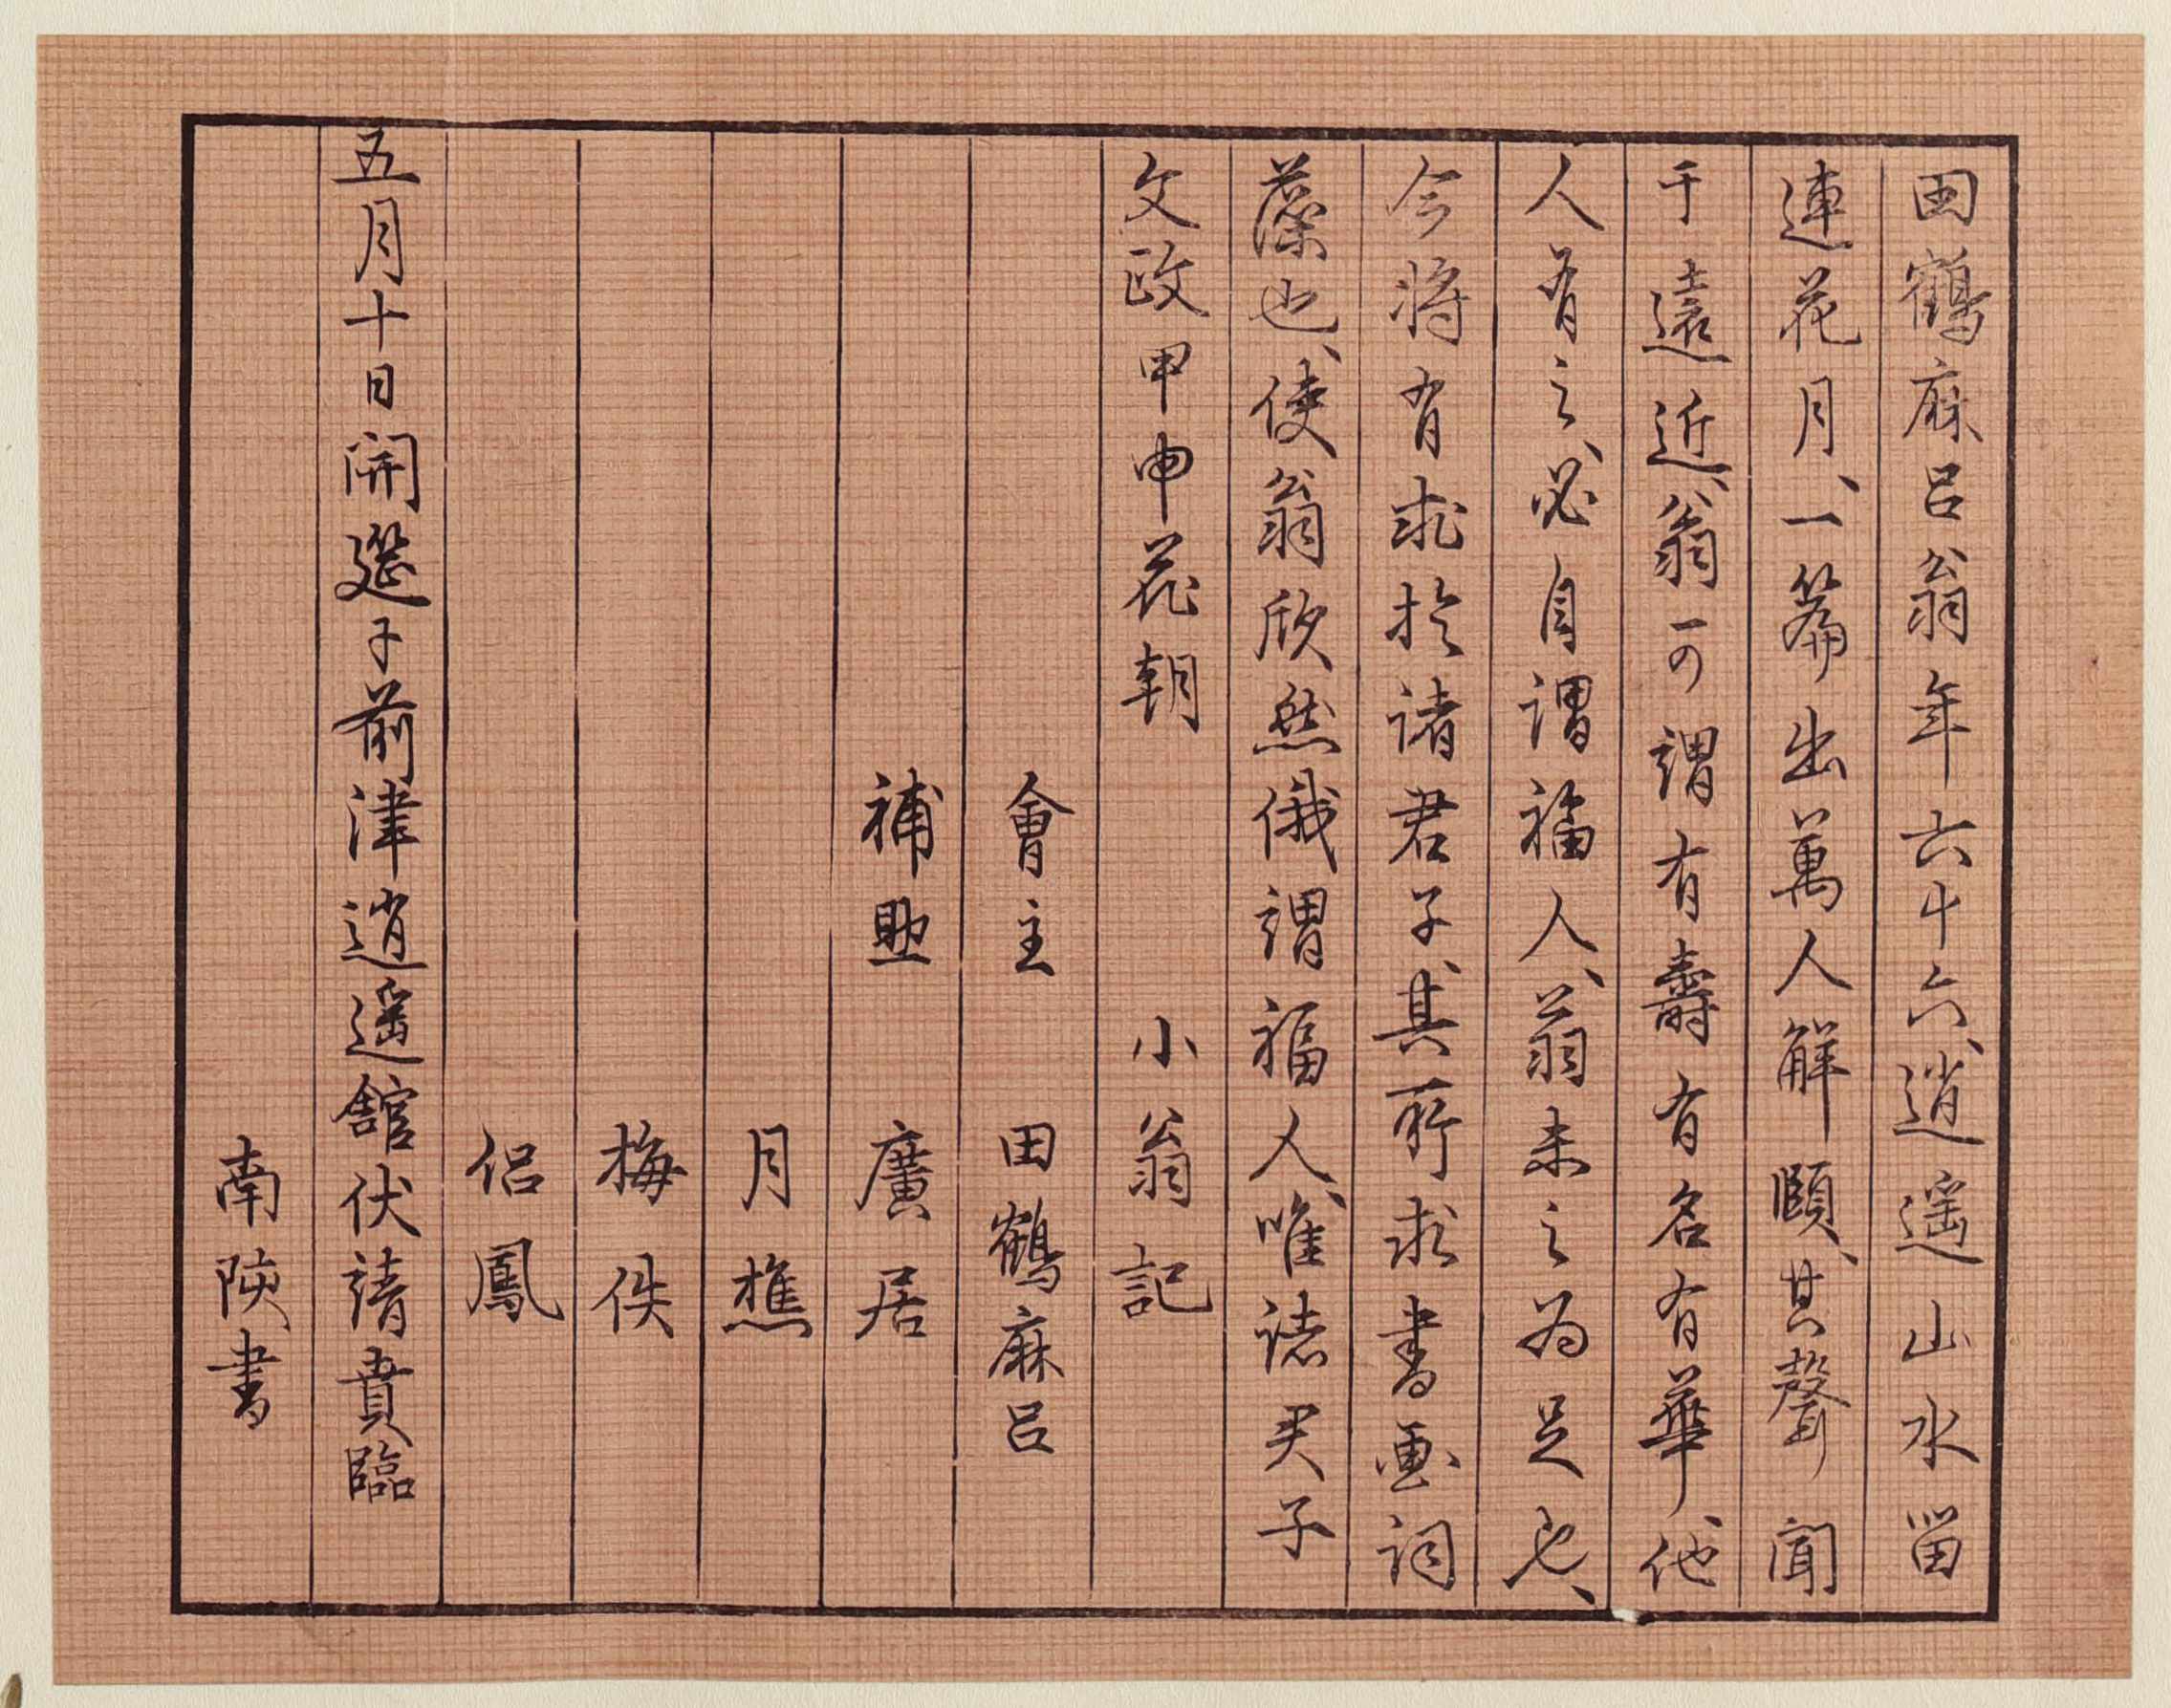 田鶴麻呂翁年六十六、逍遥山水留
連花月、一篇出萬人解頤、其聲聞
于遠近、翁可謂有壽有名有華、他
人有之、必自謂福人、翁未之為足也、
今将有求於諸君子、其所求書画詞
藻也、使翁欣然俄謂福人、唯諸君子
文政甲申花朝　小翁記
會主　田鶴麻呂
補助　廣居
月樵
梅佚
侶鳳
五月十日開筵于前津逍遥舘伏請賁臨
南陝書